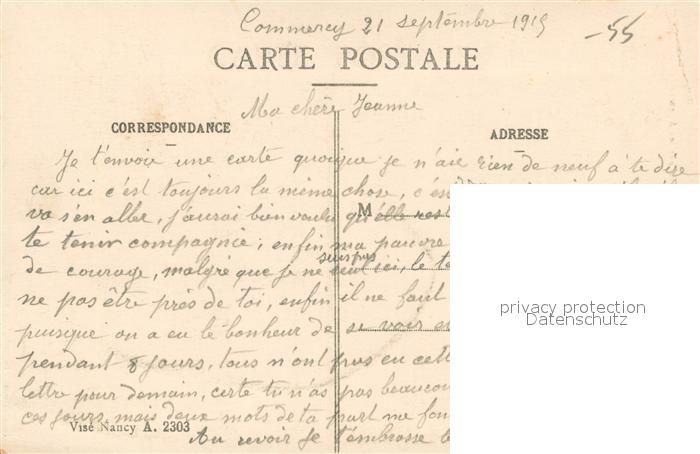 Commercy 21 septembre 1915
-55
CARTE POSTALE
Ma chère Jeanne
CORRESPONDANCE
ADRESSE
Je t'envoie une carte quoique je n'aie rien de neuf à te dire
car ici c'est toujours la même chose, c'es
va s'en aller, j'aurai bien voulu qu'elle rest
M
te tenir compagnie; enfin ma pauvre
de courage, malgré que je ne suis pas ici, le
ne pas être près de toi, enfin il ne faut
privacy protection
Datenschutz
puisque on a eu le bonheur de se voir
pendant 8 jours, tous n'ont pas eu cett
lettre pour demain, certe tu n'as pas beaucou
ces jours, mais deux mots de ta part me fon
Visé Nancy A. 2303
Au revoir je t'embrasse